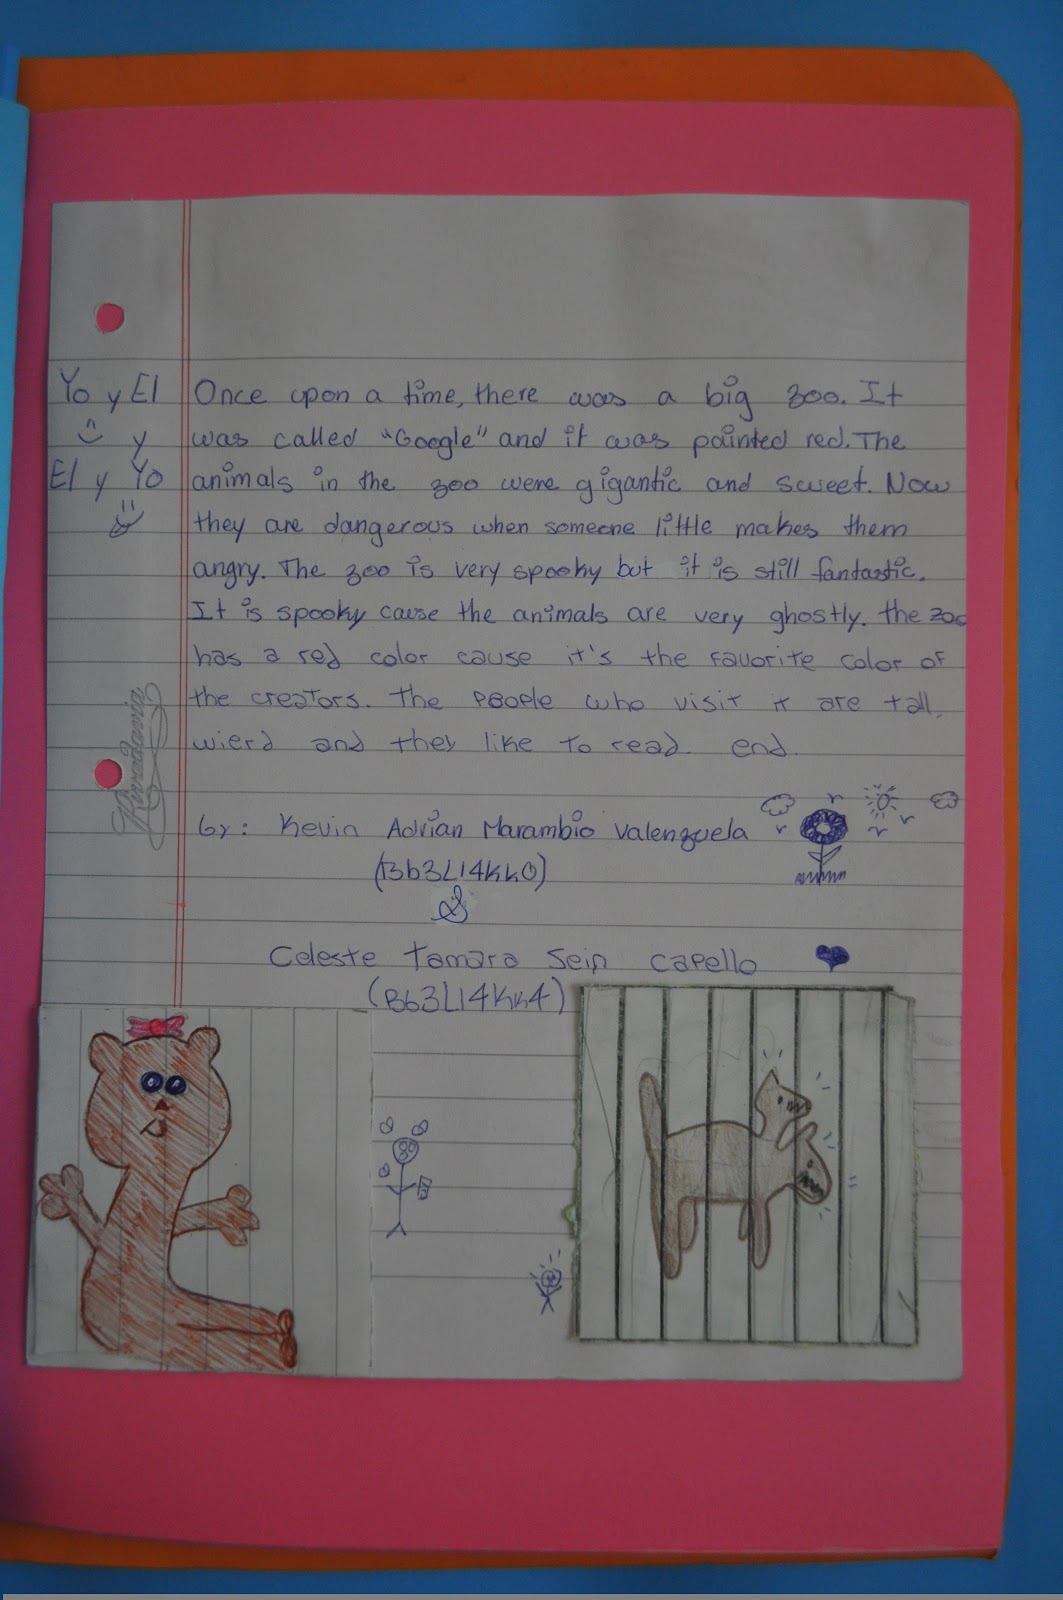 Yo y El
y
El y Yo
Once upon a time, there was a big zoo. It
was called "Google" and it was painted red. The
animals in the zoo were gigantic and sweet. Now
they are dangerous when someone little makes them
angry. The zoo is very spooky but it is still fantastic.
It is spooky cause the animals are very ghostly. the zoo
has a red color cause it's the favorite color of
the creators. The people who visit it are tall,
wierd and they like to read. end.
Rivadavia
by: Kevin Adrian Marambio Valenzuela
(Bb3L14KkO)
&
Celeste Tamara Sein Capello
(Bb3L14Kk4)